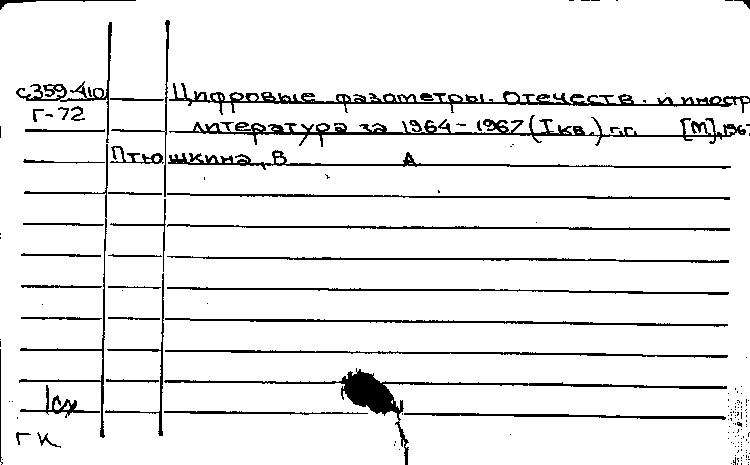 с359-410 Цифровые фазометры. Отечеств. и иностр
Г-72 литература за 1964-1967 (I кв.) г.г. [М], 1967
Птюшкина, В А
1сх
ГК